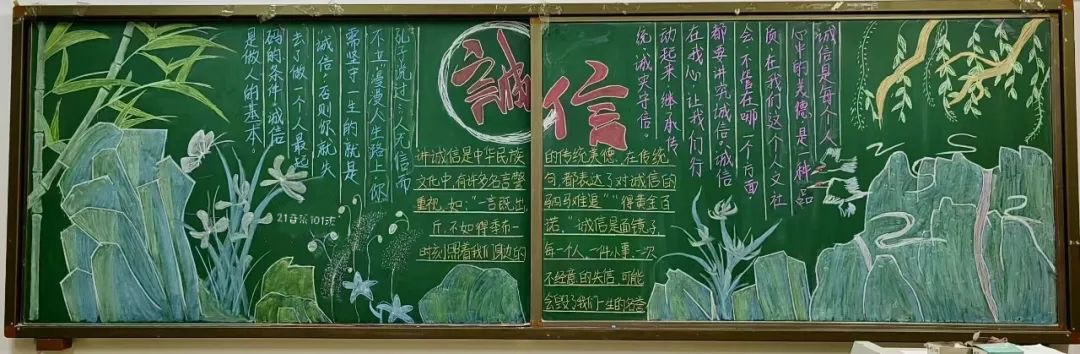 誠信
诚信是每个人
心中的美德,是一种品
质,在我们这个人文社
会,不管在哪一个方面
都要讲究诚信。诚信
在我心,让我们行
动起来,继承传
统,诚实守信。
孔子说过:人无信而
不立,漫漫人生路上,你
需坚守一生的就是
诚信,否则你就失
去了做一个人最起
码的条件,诚信
是做人的基本。
讲诚信是中华民族的传统美德,在传统
文化中,有许多名言警句,都表达了对诚信的
重视,如:"一言既出,驷马难追""得黄金百
斤,不如得季布一诺,"诚信是面镜子,
时刻照着我们身边的每一个人,一件小事,一次
不经意的失信,可能
会毁了我们一生的名誉
21音乐101班